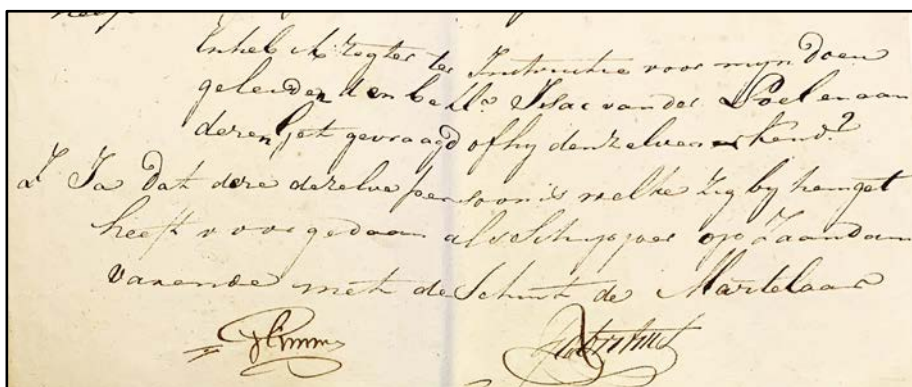 Enkel de Regter ter Instructie voor mijn doen
geleiden den bekl.e Isac van der Poel en aan
deren get gevraagd of hy denzelven erkend?
Z Ja dat deze dezelve persoon is welke zig by hem get
heeft voorgedaan als Schipper op Zaandam
varende met de Schuit de Martelaar